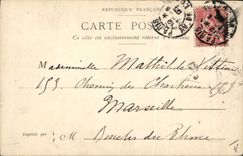 RÉPUBLIQUE FRANÇAISE
CARTE POS
Ce côté est exclusivement réservé à
Mademoiselle Mathilde
153 Chemin des Chartreux
Marseille
Expédié par
M Bouches du Rhône